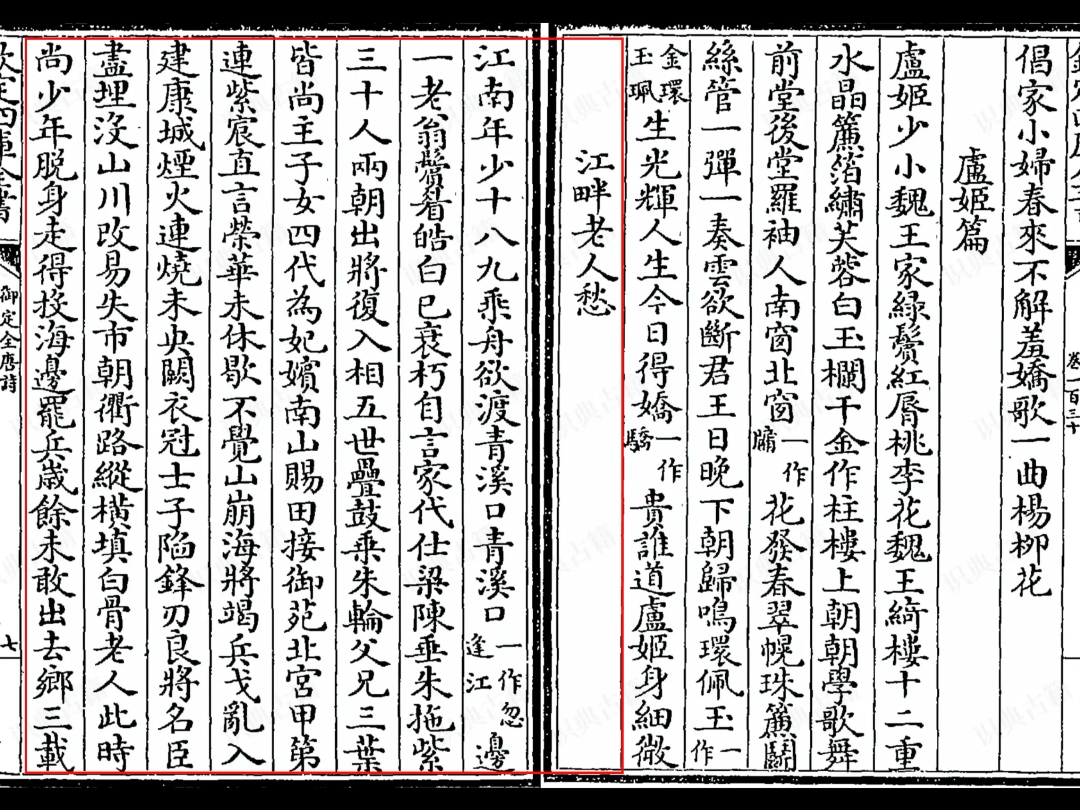 卷一百三十
倡家小婦春來不解羞嬌歌一曲楊柳花
盧姬篇
盧姬少小魏王家綠鬢紅脣桃李花魏王綺樓十二重
水晶簾箔繡芙蓉白玉欄干金作柱樓上朝朝學歌舞
前堂後堂羅袖人南窗北窗一作牖花發春翠幌珠簾鬭
絲管一彈一奏雲欲斷君王日晚下朝歸鳴環佩玉一作
金環玉珮生光輝人生今日得嬌一作驕貴誰道盧姬身細微
江畔老人愁
江南年少十八九乘舟欲渡青溪口青溪口一作忽逢江邊
一老翁鬢眉皓白已衰朽自言家代仕梁陳垂朱拖紫
三十人兩朝出將復入相五世疊鼓乘朱輪父兄三葉
皆尚主子女四代為妃嬪南山賜田接御苑北宮甲第
連紫宸直言榮華未休歇不覺山崩海將竭兵戈亂入
建康城煙火連燒未央闕衣冠士子陷鋒刃良將名臣
盡埋沒山川改易失市朝衢路縱橫填白骨老人此時
尚少年脫身走得投海邊罷兵歲餘未敢出去鄉三載
御定全唐詩
七